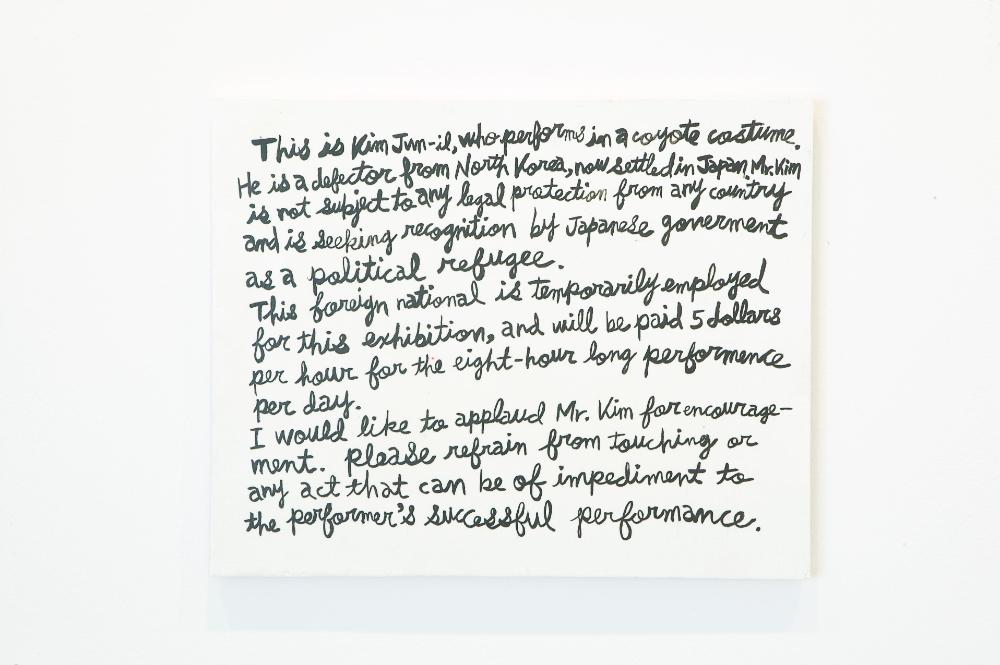 This is Kim Jun-il, who performs in a coyote costume.
He is a defector from North Korea, now settled in Japan. Mr. Kim
is not subject to any legal protection from any country
and is seeking recognition by Japanese goverment
as a political refugee.
This foreign national is temporarily employed
for this exhibition, and will be paid 5 dollars
per hour for the eight-hour long performence
per day.
I would like to applaud Mr. Kim for encourage-
ment. Please refrain from touching or
any act that can be of impediment to
the performer's successful performance.